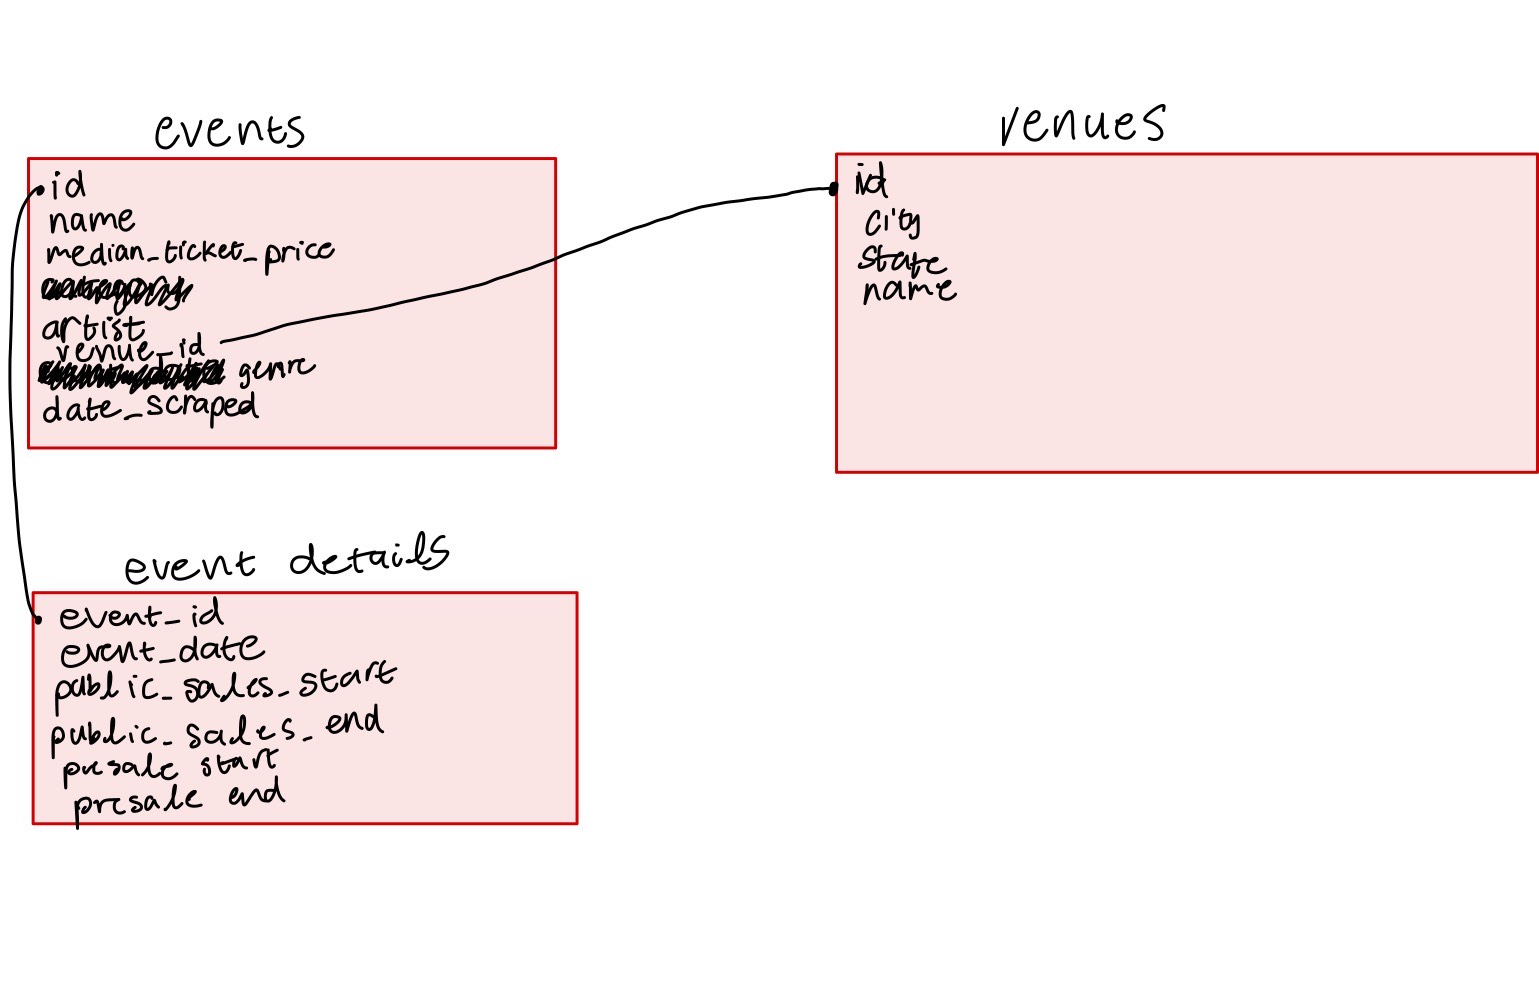 events
id
name
median_ticket_price
artist
venue_id
genre
date_scraped
venues
id
city
state
name
event details
event_id
event_date
public_sales_start
public_sales_end
presale start
presale end